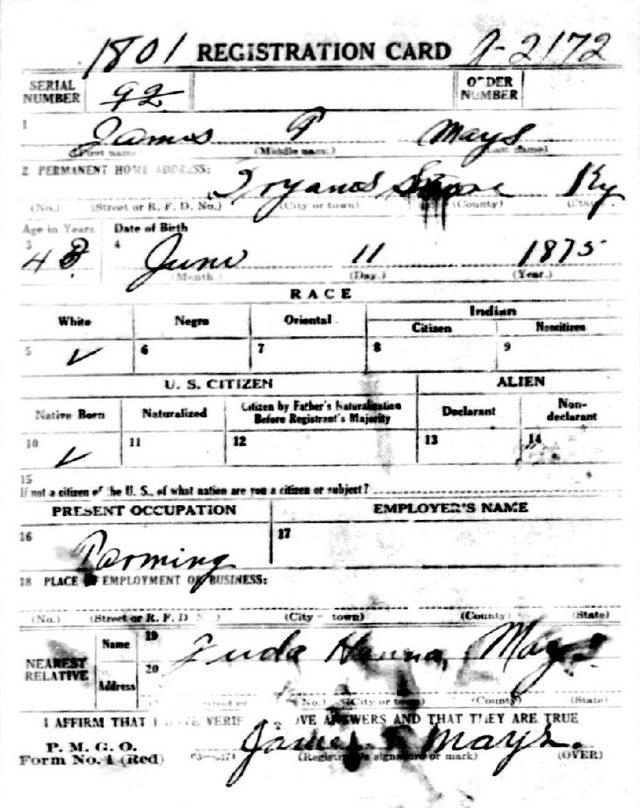 1801 REGISTRATION CARD A-2172
SERIAL NUMBER 92 ORDER NUMBER
1 James P Mays
(First name) (Middle name) (Last name)
2 PERMANENT HOME ADDRESS: Ky
(No.) (Street or R. F. D. No.) (City or town) (County) (State)
Age in Years Date of Birth
3 4
43 June 11 1875
(Month.) (Day.) (Year.)
RACE
White Negro Oriental Indian
Citizen Noncitizen
5 ✓ 6 7 8 9
U. S. CITIZEN ALIEN
Native Born Naturalized Citizen by Father's Naturalization Before Registrant's Majority Declarant Non-declarant
10 ✓ 11 12 13 14
15
If not a citizen of the U. S., of what nation are you a citizen or subject?
PRESENT OCCUPATION EMPLOYER'S NAME
16 Farming 17
18 PLACE OF EMPLOYMENT OR BUSINESS:
(No.) (Street or R. F. D. No.) (City or town) (County) (State)
NEAREST RELATIVE Name 19 Hanna, Mays
Address 20
(No.) (City or town) (County) (State)
I AFFIRM THAT I HAVE VERIFIED ABOVE ANSWERS AND THAT THEY ARE TRUE
P. M. G. O.
Form No. 1 (Red) James P Mays.
(Registrant's signature or mark) (OVER)